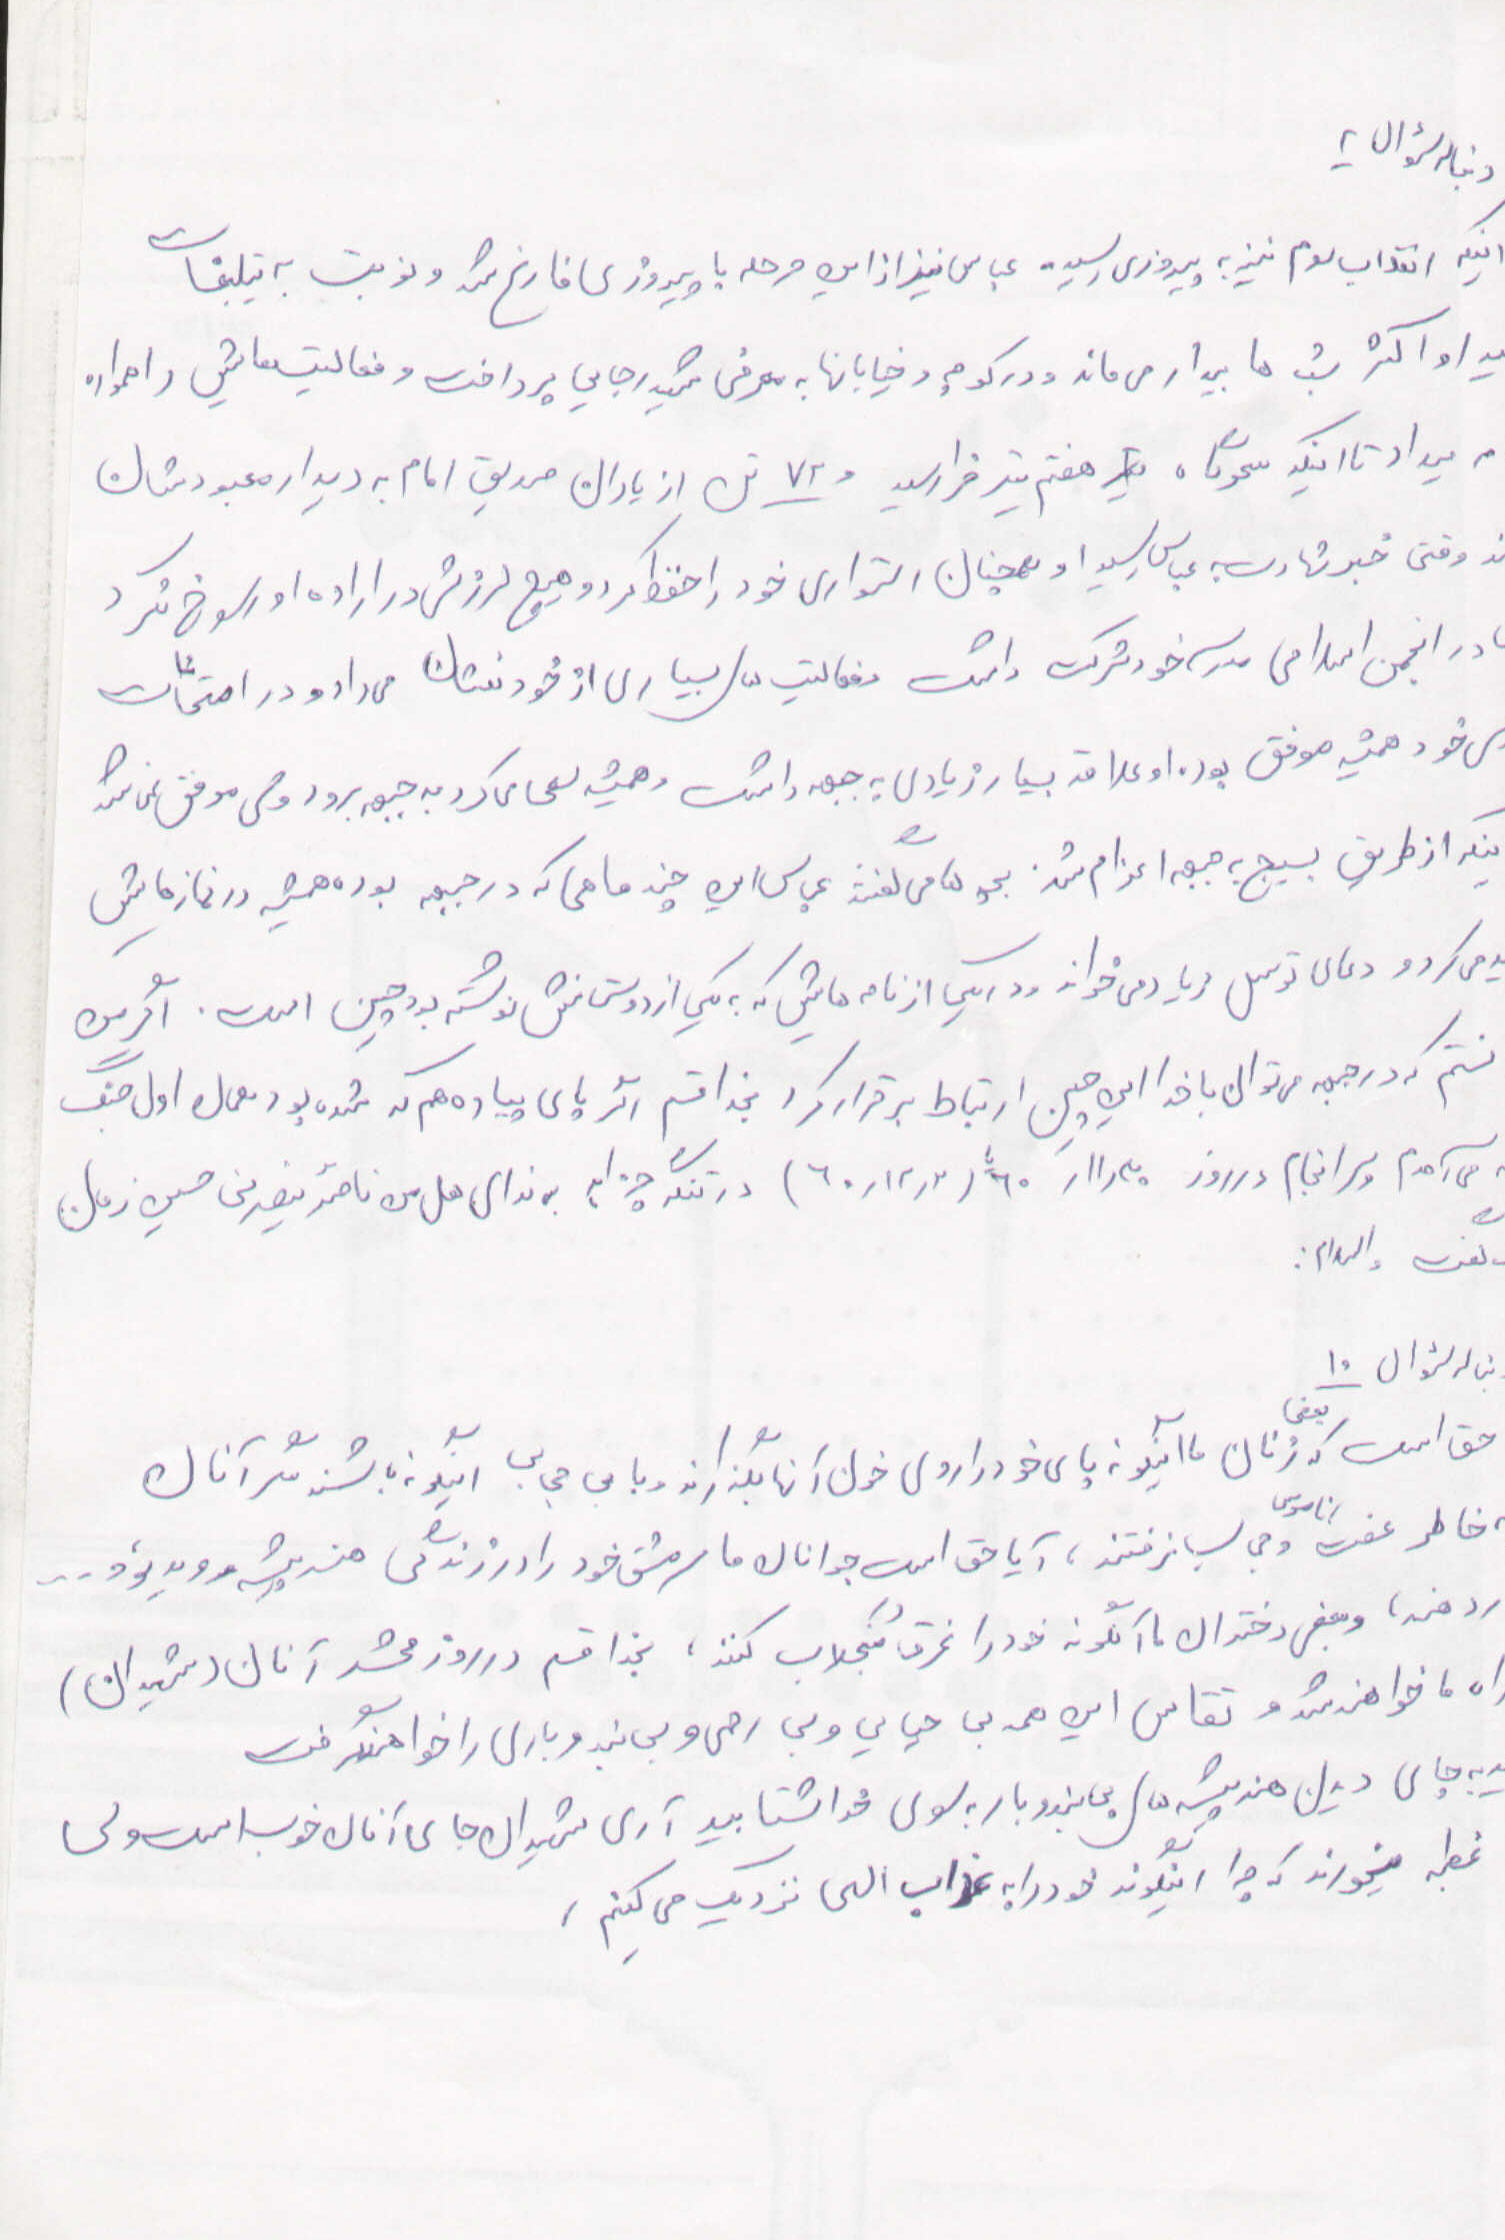 دنباله سؤال ۲
اینکه انقلاب سوم نیز به پیروزی رسید. عباس نیز از این مرحله با پیروزی فارغ شد و نوبت به تبلیغات
او اکثر شب ها بیدار می ماند و در کوچه و خیابانها به معرفی شهید رجایی پرداخت و فعالیت هایش را همواره
میداد تا اینکه سحرگاه هفتم تیر فرا رسید و ۷۲ تن از یاران صدیق امام به دیدار معبودشان
وقتی خبر شهادت به عباس رسید او همچنان استواری خود را حفظ کرد و هیچ لرزش در اراده او رسوخ نکرد
در انجمن اسلامی مدرسه خود شرکت داشت و فعالیت های بسیاری از خود نشان می داد و در امتحانات
خود همیشه موفق بود. او علاقه بسیار زیادی به جبهه داشت و همیشه سعی می کرد به جبهه برود ولی موفق نمی شد
اینکه از طریق بسیج به جبهه اعزام شد. بچه ها می گفتند عباس این چند ماهی که در جبهه بود همیشه در نمازهایش
می کرد و دعای توسل زیاد می خواند و در یکی از نامه هایش که به یکی از دوستانش نوشته بود چنین است. اگر من
که در جبهه می توان با خدا این چنین ارتباط برقرار کرد بخدا قسم اگر پای پیاده هم که شده بود همان اول جنگ
می آمدم و سرانجام در روز (۶۰/۱۲/۳) در تنگه چزابه به ندای هل من ناصر ینصرنی حسین زمان
گفت والسلام.
دنباله سؤال ۱۰
حق است که بعضی زنان ما اینگونه پای خود را روی خون آنها بگذارند و با بی حجابی اینگونه باشند مگر آنان
خاطر عفت و ناموس و حجاب نرفتند، آیا حق است جوانان ما سرمشق خود را در زندگی هنرپیشه و ویدئو و ...
دهند، و بعضی دختران ما آنگونه خود را غرق منجلاب کنند، بخدا قسم در روز محشر آنان (شهیدان)
راه ما خواهند شد و تقاص این همه بی حیایی و بی رحمی و بی بند و باری را خواهند گرفت
به جای دیدن هنرپیشه های بی بند و بار به سوی خدا بشتابید آری شهیدان جای آنان خوب است ولی
غبطه میخورند که چرا اینگونه خود را به عذاب الهی نزدیک می کنیم،